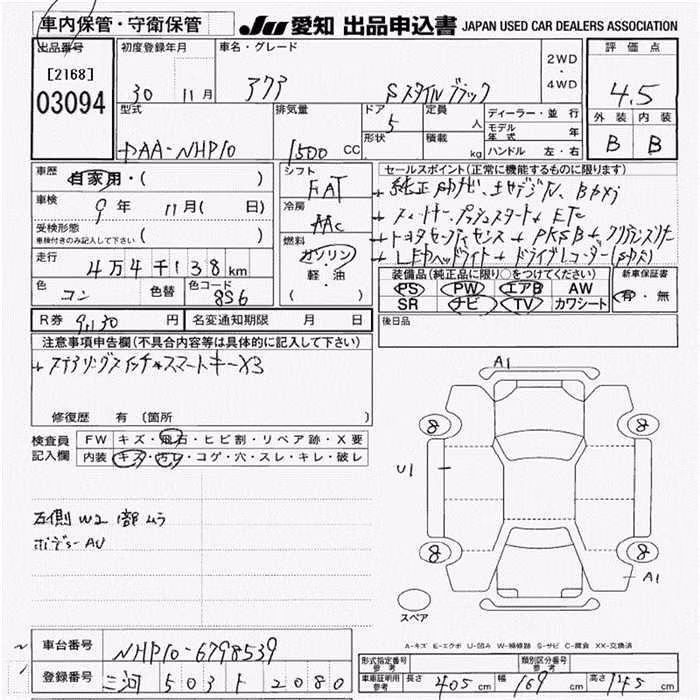 車内保管・守衛保管
JU 愛知 出品申込書 JAPAN USED CAR DEALERS ASSOCIATION
出品番号
[2168]
03094
初度登録年月
30 11月
車名・グレード
アクア Sスタイルブラック
2WD
・
4WD
評価点
4.5
外装 内装
B B
型式
DAA-NHP10
排気量
1500 CC
ドア
5
形状
定員
人
積載
kg
ディーラー・並行
モデル年式 年
ハンドル 左・右
車歴
自家用・( )
車検
9年 11月( 日)
受検形態
車検付きのみ記入して下さい ( )
走行
4万4千138km
色
コン
色替
色コード
8S6
シフト
FAT
冷房
AAC
燃料
ガソリン
・
軽・油
( )
セールスポイント(正常に機能するものに限ります)
+純正SDナビ、地デジTV、Bカメラ
+スマートキー、プッシュスタート+ETC
+トヨタセーフティセンス+PKSB+クリアランスソナー
+LEDヘッドライト+ドライブレコーダー(SDカード)
装備品(純正品に限り○をつけてください)
PS PW エアB AW
SR ナビ TV カワシート
新車保証書
有・無
R券 9,130 円
名変通知期限 月 日
後日品
注意事項申告欄(不具合内容等は具体的に記入して下さい)
+ステアリングスイッチ+スマートキーX3
修復歴 有 (箇所
検査員記入欄
FW キズ・飛石・ヒビ割・リペア跡・X要
内装 キズ・汚レ・コゲ・穴・スレ・キレ・破レ
右側W2 1部ムラ
ボデーAU
A1
8
8
U1
8
8
A1
スペア
A-キズ E-エクボ U-凹み W-補修跡 S-サビ C-腐食 XX-交換済
車台番号 NHP10-6798539
登録番号 三河 503 ト 2080
型式指定番号 参考
類別区分番号 参考
車庫証明用 参考 長さ 405cm 幅 169cm 高さ 145cm